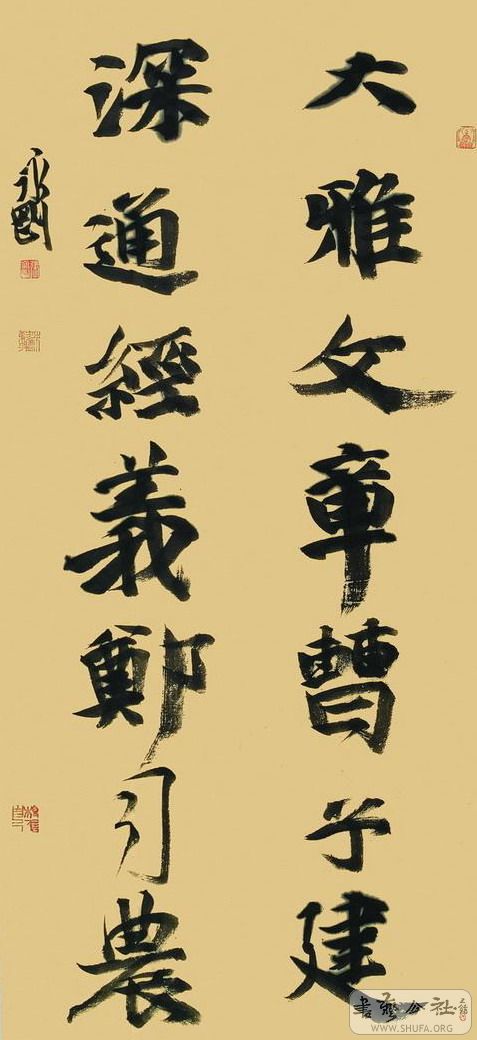 大雅文章曹子建
深通經義鄭司農
永剛
書法公社
WWW.SHUFA.ORG